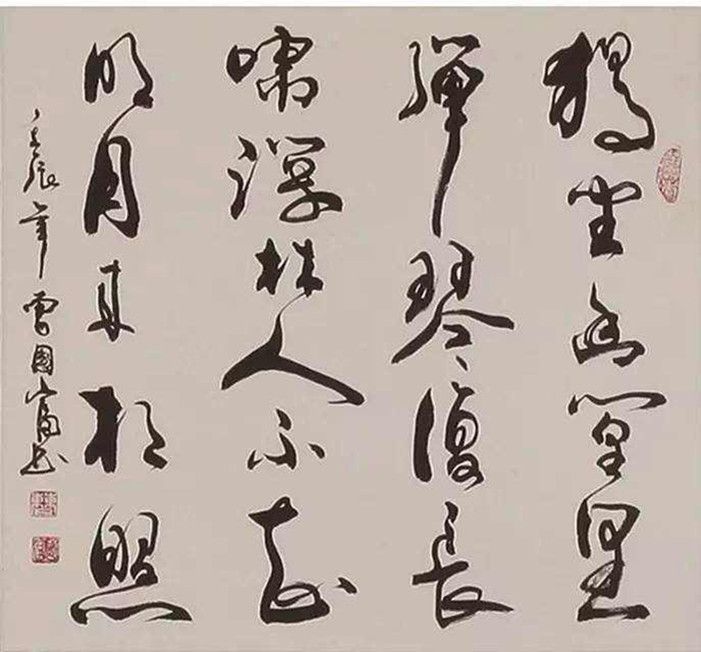 獨坐幽篁里
彈琴復長
嘯深林人不知
明月來相照
壬辰年國富書